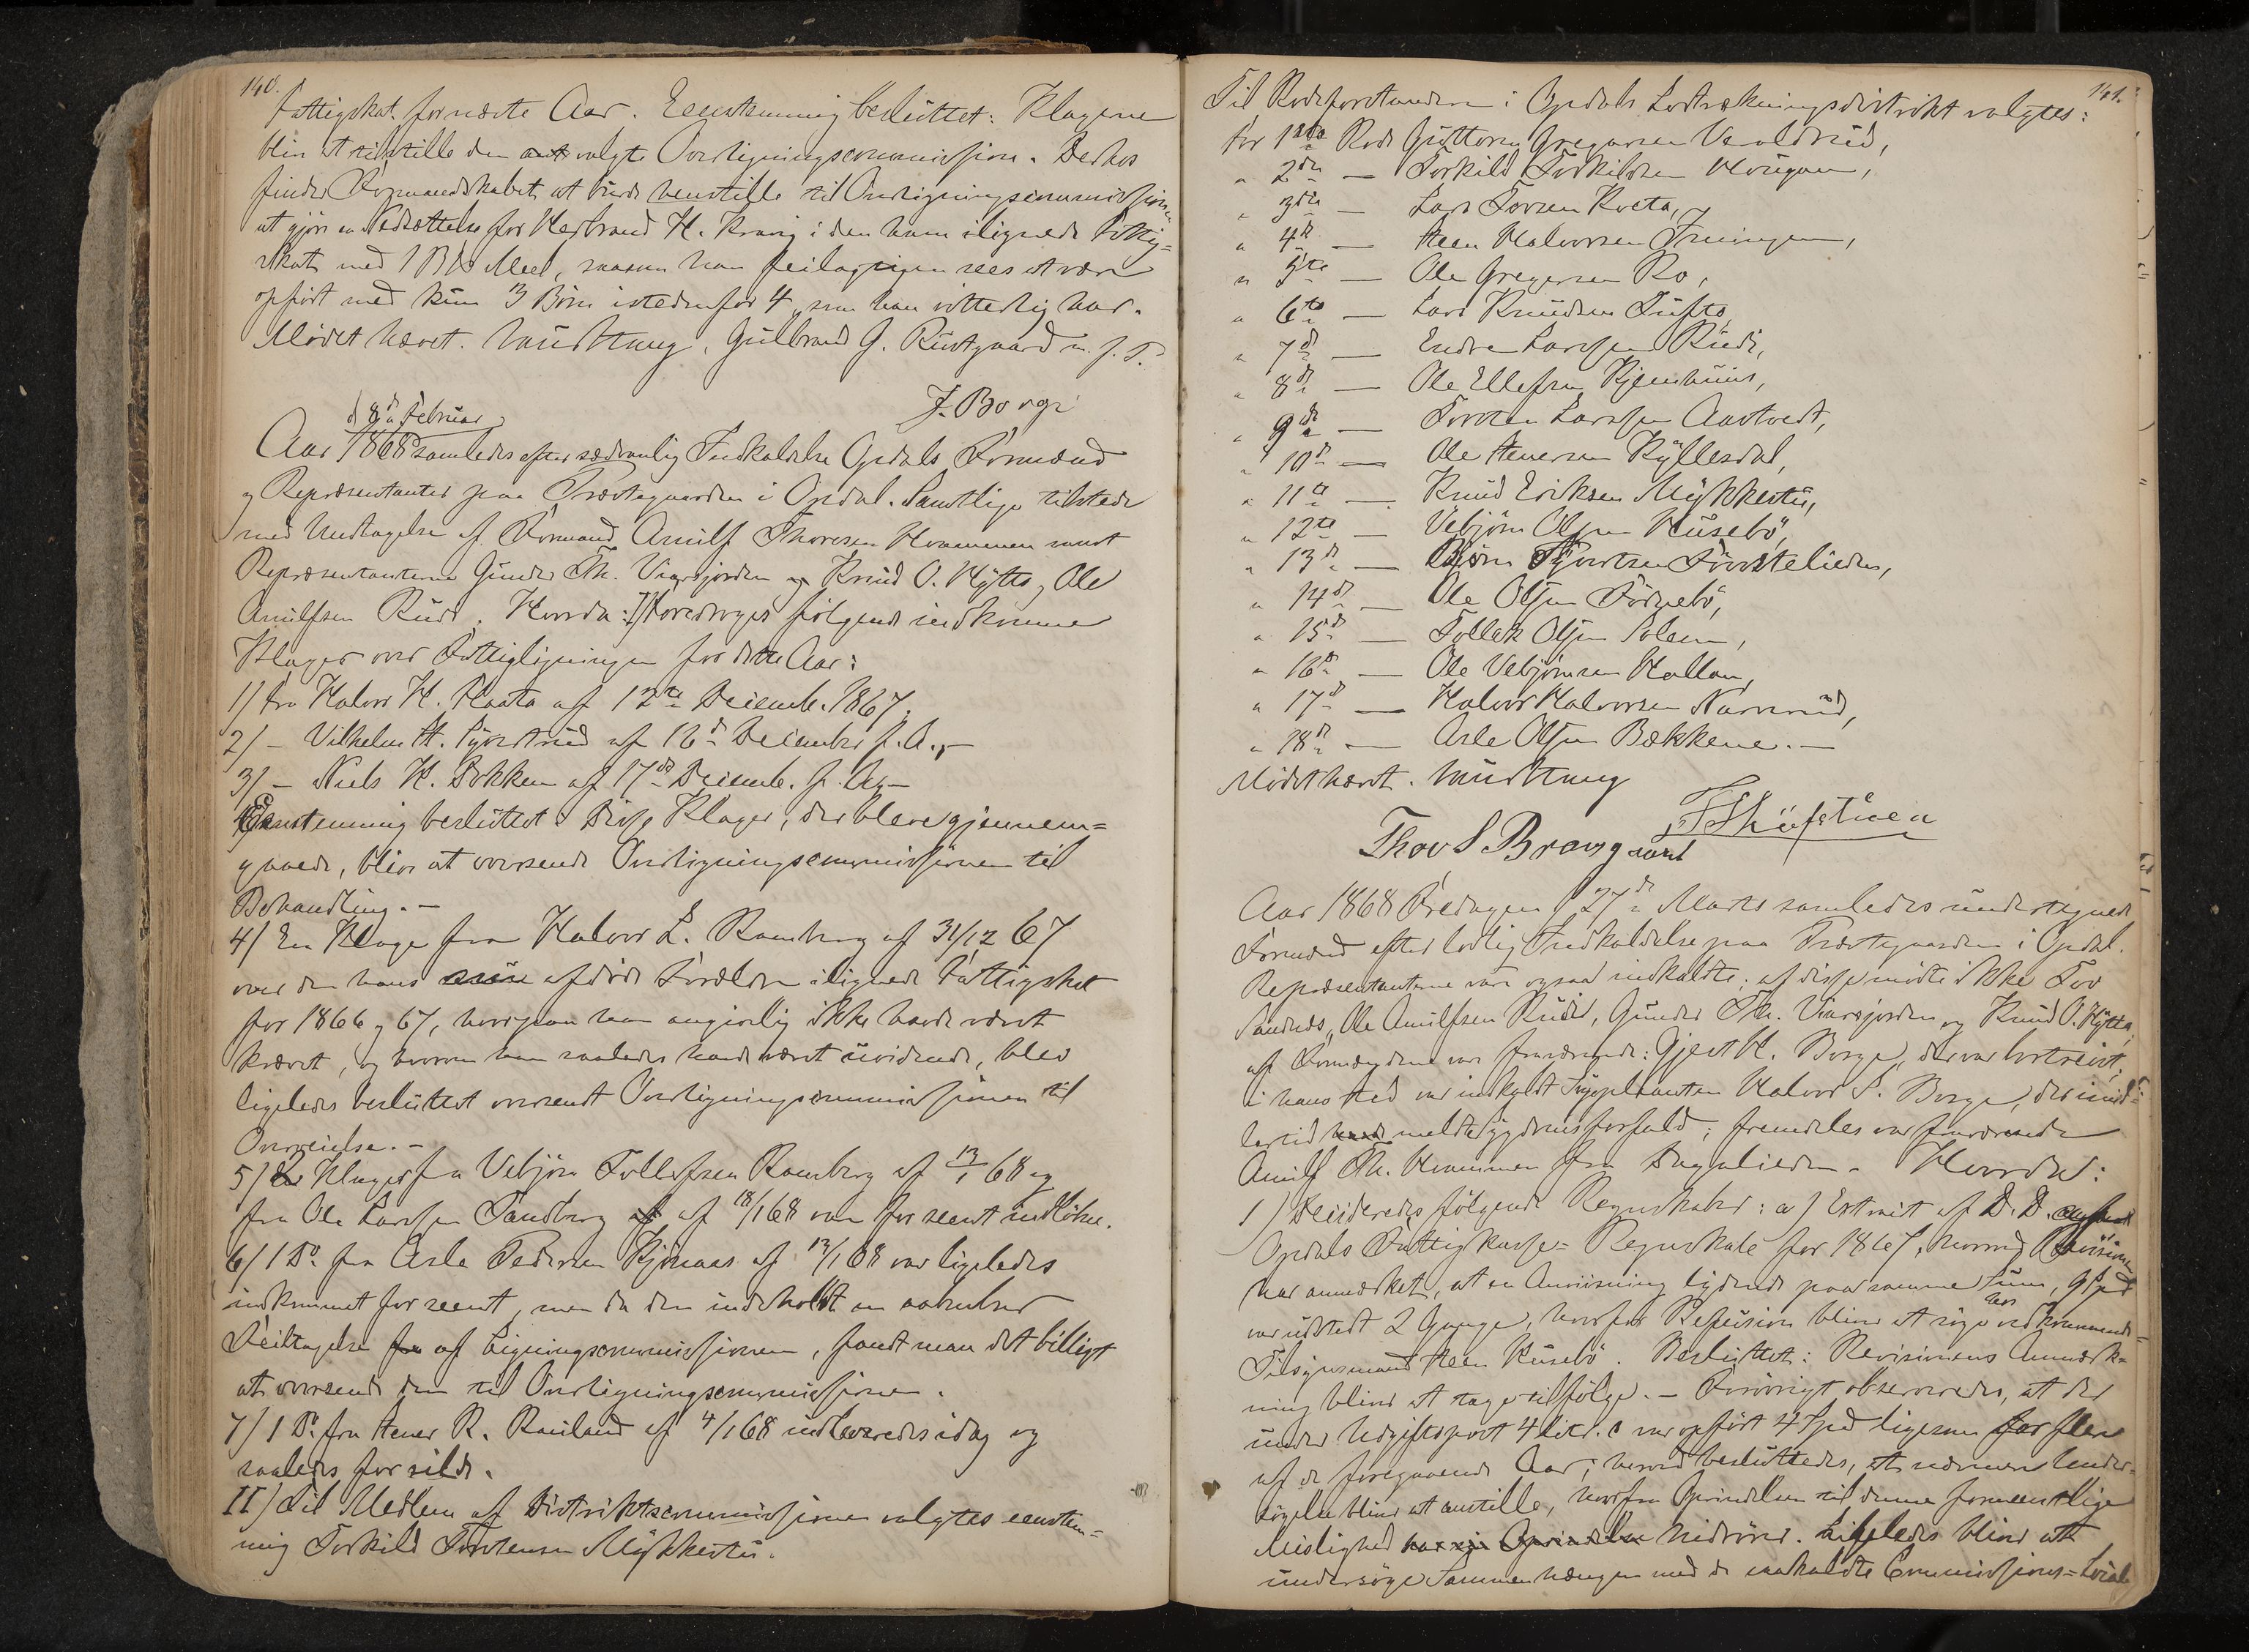 140.
Fattigskat for næste Aar. Eenstemmig besluttet: Klagerne
bliver at tilstille den valgte Overligningscommission. Derhos
finder Formandskabet at burde henstille til Overligningscommissionen
at gjøre en Nedsættelse for Herbrand H. Kravig i den ham ilignede Fattig=
skat med 1 Bd Meel, saasom han feilagtigen sees at være
opført med kun 3 Børn istedenfor 4, som han vitterlig har.
Mødet hævet. Mustkaug, Gulbrand G. Rustgaard m. f. T.
J. Borge
d 8de Februar
Aar 1868 samledes efter sædvanlig Indkaldelse Opdals Formænd
og Repræsentanter paa Præstegaarden i Opdal. Samtlige tilstede
med Undtagelse af Formand Arnulf Thoresen Hvammen samt
Repræsentanterne Gunder Th. Viersjorden og Knud O. Hytta, Ole
Arnulfsen Ruud. Hvorda: I) foredroges følgende indkomne
Klager over Fattigligningen for dette Aar:
1) fra Halvor H. Flaata af 12te Decemb. 1867.
2) – Vilhelm H. Synstrud af 16de December f. A., –
3) – Niels H. Bokken af 17de Decemb. f. A, –
Eenstemmig besluttet: Disse Klager, der bleve gjennem=
gaaede, bliver at oversende Overligningscommissionen til
Behandling. –
4) En Klage fra Halvor L. Ramberg af 31/12 67
over den hans afdøde Forældre ilignede Fattigskat
for 1866 og 67, hvorpaa han angivelig ikke havde været
krævet, og hvorom han saaledes havde været uvidende, blev
ligeledes besluttet oversendt Overligningscommissionen til
Overveielse. –
5) Klager fra Vebjørn Tollefsen Ramberg af 13/1 68 og
fra Ole Larssen Sandberg af 18/1 68 var for seent indløbne.
6) 1 Do. fra Asle Pedersen Kjønaas af 12/1 68 var ligeledes
indkommet for seent, men da den indeholdt en aabenbar
Feiltagelse af Ligningscommissionen, fandt man det billigt
at oversende den til Overligningscommissionen.
7) 1 Do. fra Stener R. Rauland af 4/1 68 indleveredes idag og
saaledes for silde.
II) Til Medlem af Districtscommissionen valgtes eenstem=
mig Torkild Torstensen Mykkestu.
141.
Til Rodeforstandere i Opdals Lodtrækningsdistrikt valgtes:
for 1ste Rode Guttorm Gregarsen Veraldrud,
" 2den — Torkild Torkildsen Hougen,
" 3die — Lars Torsen Kroeta,
" 4de — Steen Halvorsen Frusingen,
" 5te — Ole Gregersen Ro,
" 6te — Lars Knudsen Tufte,
" 7de — Endre Larssen Ruud,
" 8de — Ole Ellefsen Kjemhuus,
" 9de — Torsten Larssen Aastvedt,
" 10de — Ole Stenersen Kyllesdal,
" 11te — Knud Eriksen Mykkestu,
" 12te — Vebjørn Olsen Husebø,
" 13de — Bjørn Syvertsen Førstelien,
" 14de — Ole Olsen Fønnebø,
" 15de — Tollek Olsen Solem,
" 16de — Ole Vebjørnsen Hallan,
" 17de — Halvor Halvorsen Narverud,
" 18de — Asle Olsen Bækkene. —
Mødet hævet. Mustkaug
Thov S Braaggaard
Aar 1868 Fredagen d 27de Marts samledes undertegnede
Formænd efter lovlig Indkaldelse paa Præstegaarden i Opdal.
Repræsentanterne vare ogsaa indkaldte; af disse mødte ikke Tov
Sandnæs, Ole Arnulfsen Ruud, Gunder Th. Viersjorden og Knud O. Hytta;
af Formændene var fraværende: Gjest H. Borge, der var bortreist;
i hans Sted var indkaldt Suppleanten Halvor S. Borge, der imid=
lertid meldte Sygdomsforfald; fremdeles var fraværende
Arnulf Th. Hvammen fra Dagalien. Hvorda:
1) Decideredes følgende Regnskaber: a) Extract af D. D.
Opdals Fattigkasse= Regnskab for 1867, hvorved Revisionen
har anmærket, at en Anviisning lydende paa samme Sum, 9 Spd
var udstedt 2 Gange, hvorfor Refusion bliver at søge hos vedkommende=
Tilsynsmand Steen Husebø. Besluttet: Revisionens Anmærk=
ning bliver at tage tilfølge. – Forøvrigt observeredes, at der
under Udgiftspost 4 litr. c var opført 4 Spd ligesom for flere
af de foregaaende Aar; herved besluttedes, at nærmere Under=
søgelse bliver at anstille, hvorfra Oprindelsen til denne formeentlige
Mislighed hidrører. Ligeledes bliver at
undersøge Sammenhængen med de saakaldte Commissions=Local